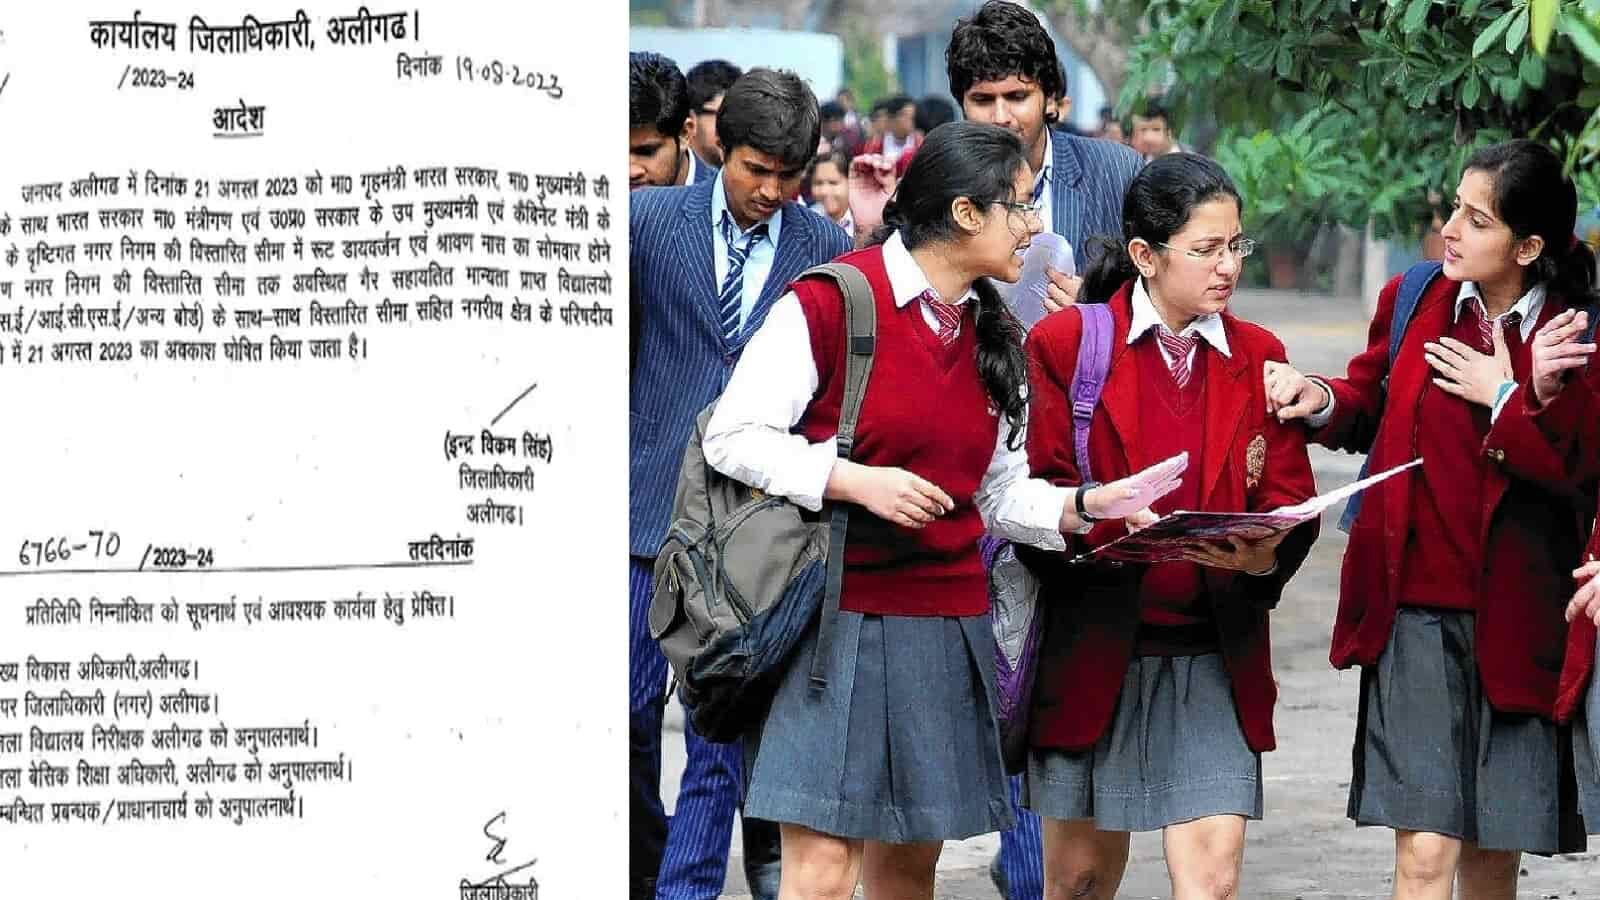 कार्यालय जिलाधिकारी, अलीगढ।
/2023-24 दिनांक 19.08.2023
आदेश
जनपद अलीगढ में दिनांक 21 अगस्त 2023 को मा0 गृहमंत्री भारत सरकार, मा0 मुख्यमंत्री जी
के साथ भारत सरकार मा0 मंत्रीगण एवं उ0प्र0 सरकार के उप मुख्यमंत्री एवं कैबिनेट मंत्री के
के दृष्टिगत नगर निगम की विस्तारित सीमा में रूट डायवर्जन एवं श्रावण मास का सोमवार होने
ण नगर निगम की विस्तारित सीमा तक अवस्थित गैर सहायतित मान्यता प्राप्त विद्यालयो
स.ई/आई.सी.एस.ई/अन्य बोर्ड) के साथ-साथ विस्तारित सीमा सहित नगरीय क्षेत्र के परिषदीय
में 21 अगस्त 2023 का अवकाश घोषित किया जाता है।
(इन्द्र विक्रम सिंह)
जिलाधिकारी
अलीगढ।
6766-70 /2023-24 तद्दिनांक
प्रतिलिपि निम्नांकित को सूचनार्थ एवं आवश्यक कार्यवा हेतु प्रेषित।
ख्य विकास अधिकारी,अलीगढ।
पर जिलाधिकारी (नगर) अलीगढ।
ला विद्यालय निरीक्षक अलीगढ को अनुपालनार्थ।
ला बेसिक शिक्षा अधिकारी, अलीगढ को अनुपालनार्थ।
म्बन्धित प्रबन्धक/प्राधानाचार्य को अनुपालनार्थ।
जिलाधिकारी